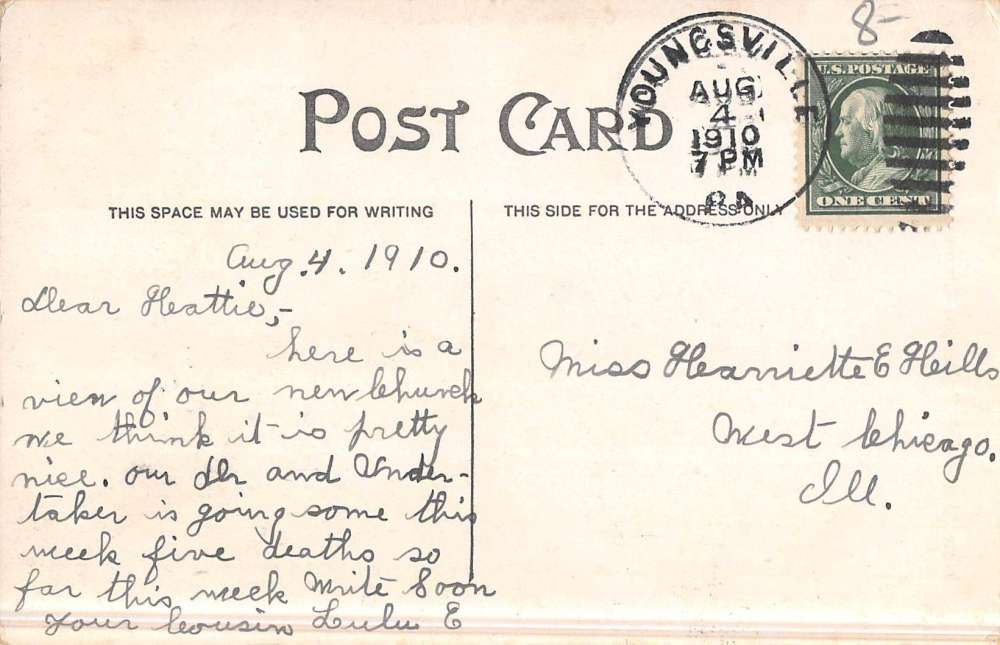 8-
YOUNGSVILLE
AUG
4
1910
7 PM
PA
U.S. POSTAGE
ONE CENT
POST CARD
THIS SPACE MAY BE USED FOR WRITING
THIS SIDE FOR THE ADDRESS ONLY
Aug. 4. 1910.
Dear Hattie,-
here is a
view of our new Church
we think it is pretty
nice. our Dr and Under-
taker is going some this
week five deaths so
far this week Write Soon
Your Cousin Lulu E
Miss Harriette E Hills
West Chicago.
Ill.